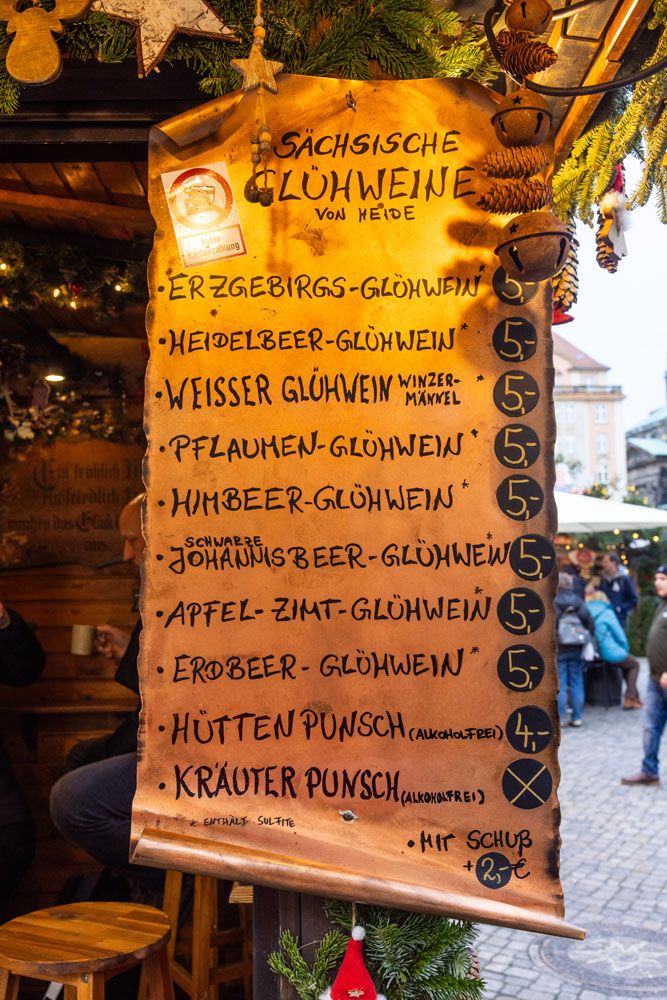 SÄCHSISCHE
GLÜHWEINE
VON HEIDE
Keine
Kartenzahlung
• ERZGEBIRGS-GLÜHWEIN* 5,-
• HEIDELBEER-GLÜHWEIN* 5,-
• WEISSER GLÜHWEIN WINZER-
MÄNNEL * 5,-
• PFLAUMEN-GLÜHWEIN* 5,-
• HIMBEER-GLÜHWEIN* 5,-
SCHWARZE
• JOHANNISBEER-GLÜHWEIN* 5,-
• APFEL-ZIMT-GLÜHWEIN* 5,-
• ERDBEER-GLÜHWEIN* 5,-
• HÜTTENPUNSCH (ALKOHOLFREI) 4,-
• KRÄUTERPUNSCH (ALKOHOLFREI)
* ENTHÄLT SULFITE
• MIT SCHUß
+ 2,- €
Ein fröhlich
ein friedlich
machen das Glück
aus.